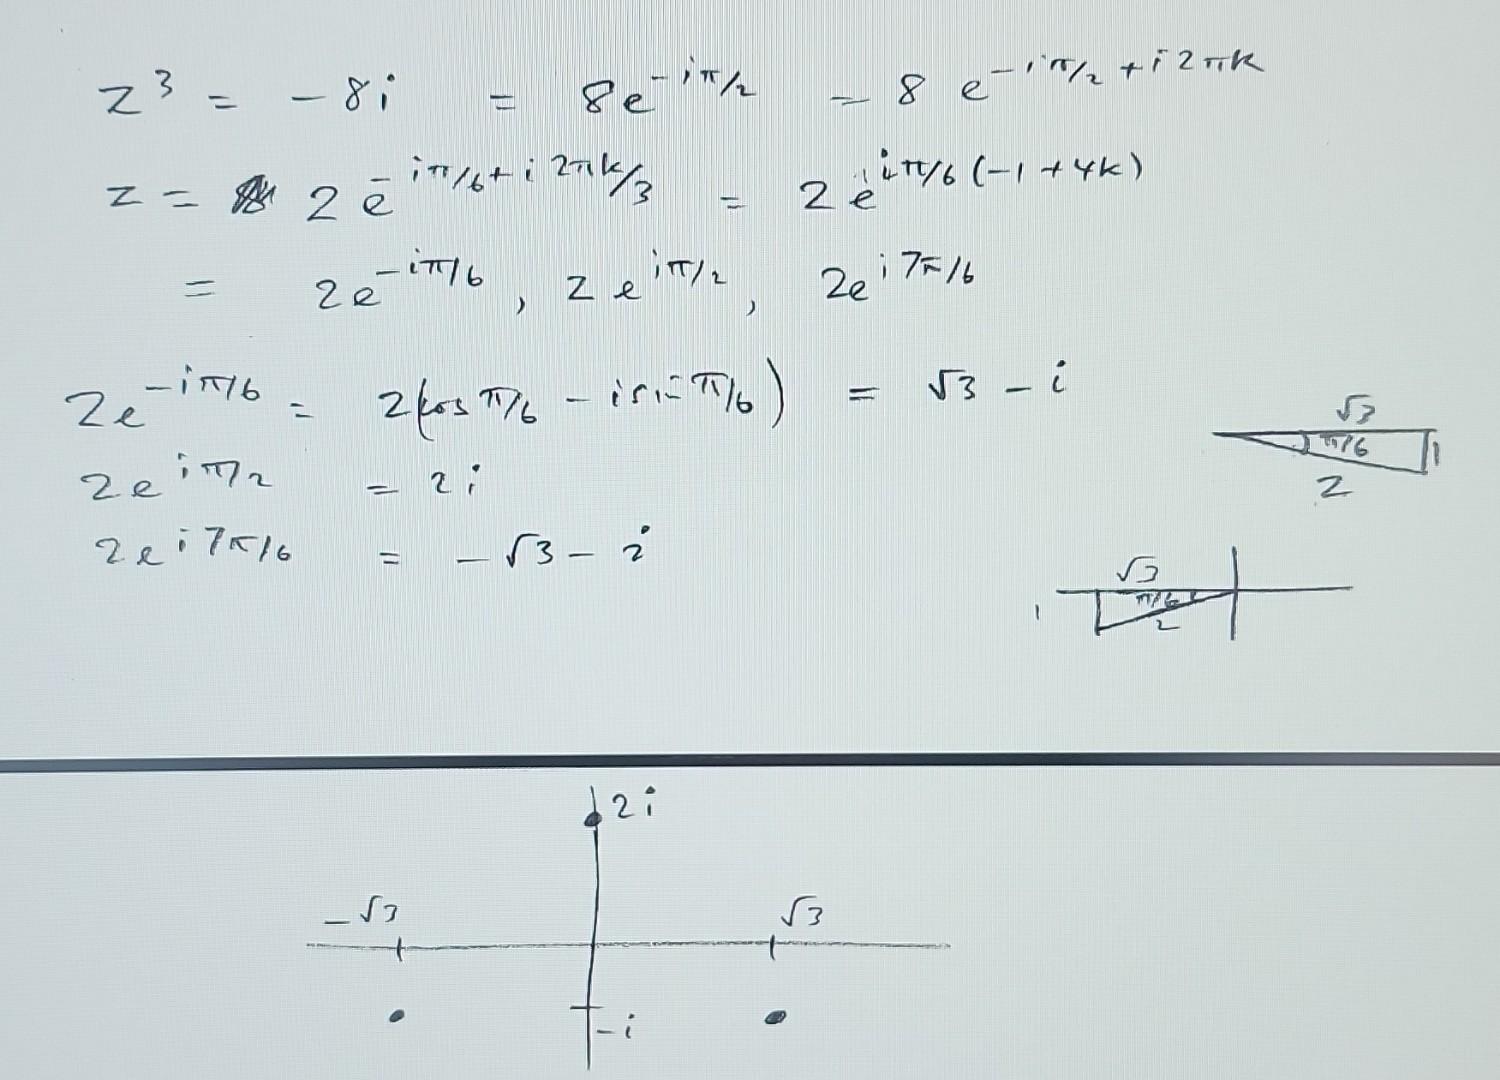 z³ = -8i = 8e^{-iπ/2} = 8 e^{-iπ/2 + i2πk}
z = 2 e^{-iπ/6 + i 2πk/3} = 2 e^{iπ/6 (-1 + 4k)}
= 2e^{-iπ/6} , 2e^{iπ/2} , 2e^{i7π/6}
2e^{-iπ/6} = 2(cos π/6 - i sin π/6) = √3 - i
√3
π/6
1
2
2e^{iπ/2} = 2i
2e^{i7π/6} = -√3 - i
√3
1
π/6
2
2i
-√3
√3
-i